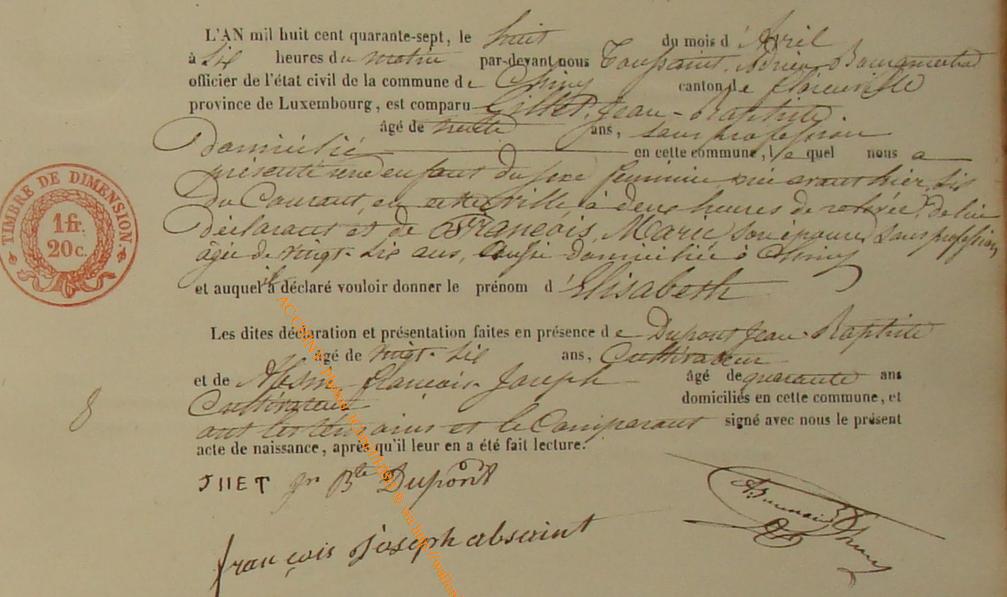 L'AN mil huit cent quarante-sept, le huit du mois d'Avril
à six heures du matin par-devant nous Toussaint, Adrien
officier de l'état civil de la commune de Chiny canton de Florenville
province de Luxembourg, est comparu Gillet, Jean-Baptiste
âgé de trente ans, sans profession
Domicilié en cette commune, le quel nous a
présenté une enfant du sexe féminin née avant hier, six
Du Courant, en cette ville à deux heures de relevée, de lui
déclarant et de François, Marie son épouse, sans profession,
âgée de vingt-six ans, aussi domiciliée à Chiny
et auquel il a déclaré vouloir donner le prénom d'Elisabeth
Les dites déclaration et présentation faites en présence de Dupont Jean-Baptiste
âgé de vingt-six ans, Cultivateur
et de François-Joseph âgé de quarante ans
Cultivateur domiciliés en cette commune, et
ont les témoins et le Comparant signé avec nous le présent
acte de naissance, après qu'il leur en a été fait lecture.
TIMBRE DE DIMENSION
1 fr.
20 c.
8
JIIET Jn Bte Dupont
françois Joseph absaint